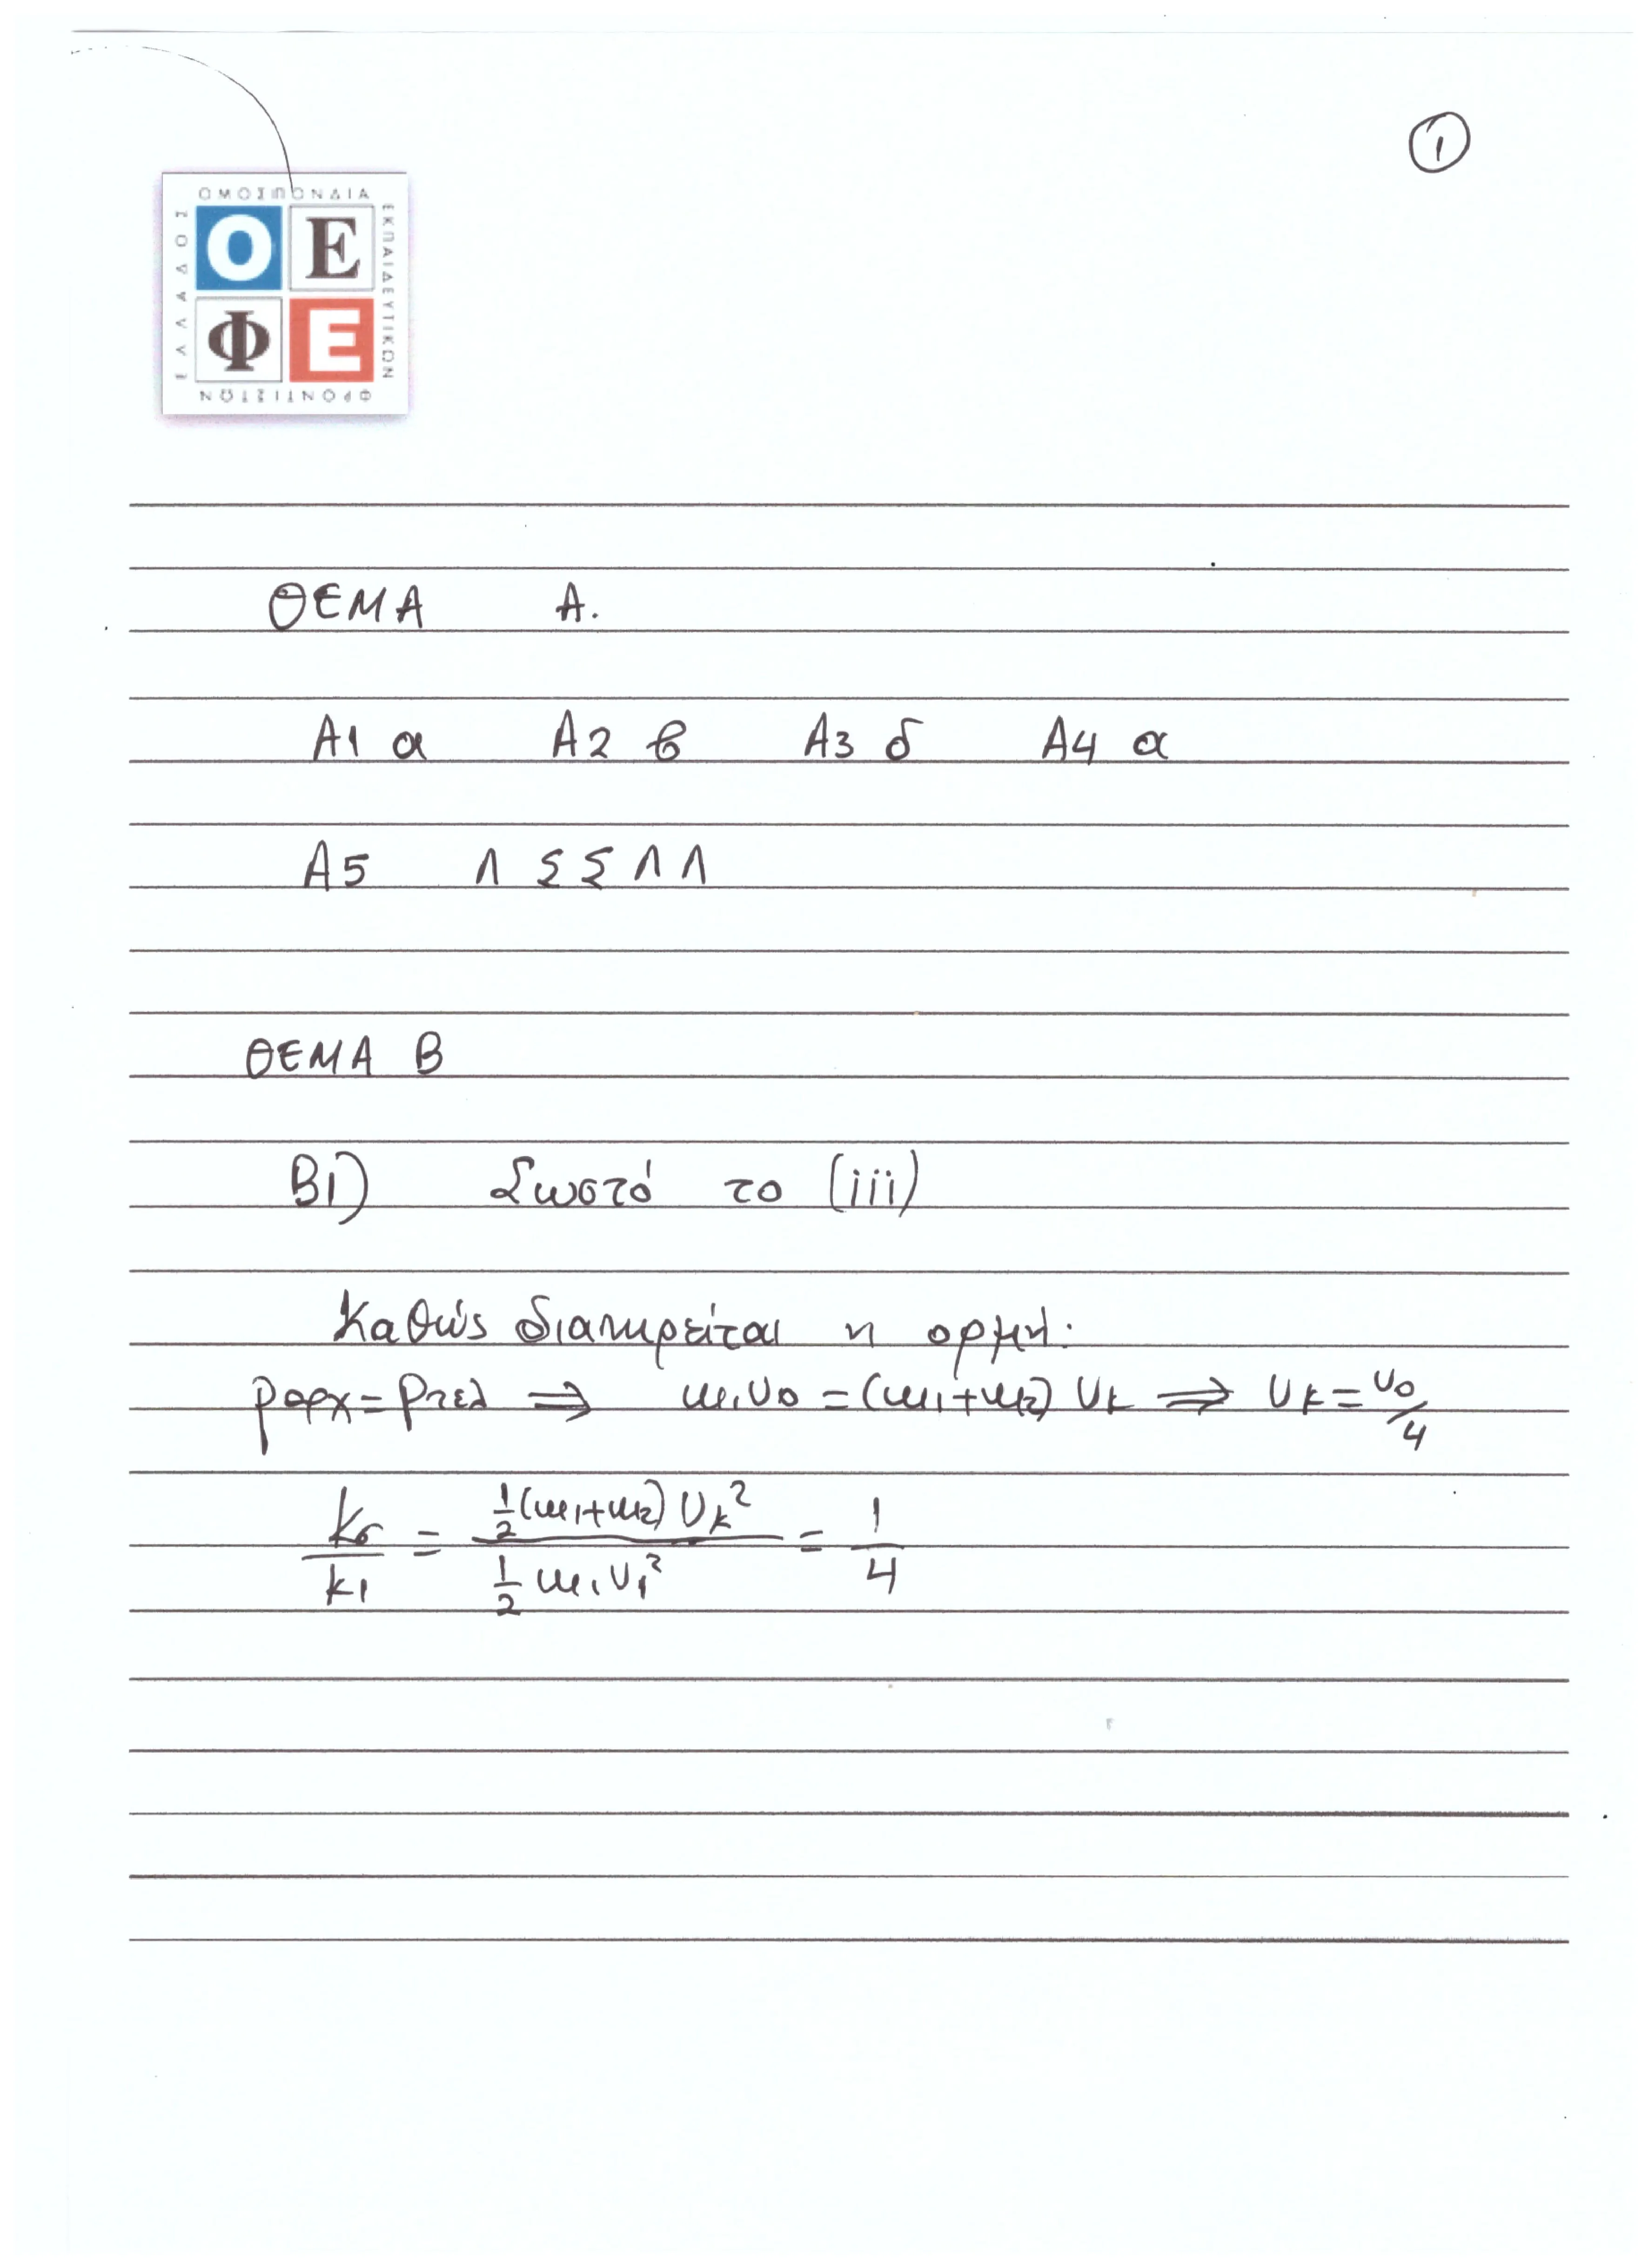 ①
ΟΜΟΣΠΟΝΔΙΑ
ΕΚΠΑΙΔΕΥΤΙΚΩΝ
ΦΡΟΝΤΙΣΤΩΝ
ΕΛΛΑΔΟΣ
Ο Ε
Φ Ε
ΘΕΜΑ Α.
Α1 α Α2 β Α3 δ Α4 α
Α5 Λ Σ Σ Λ Λ
ΘΕΜΑ Β
Β1) Σωστό το (iii)
Καθώς διατηρείται η ορμή:
pαρχ = pτελ ⇒ m₁υ₀ = (m₁+m₂) υκ ⇒ υκ = υ₀/4
Κσ/Κ1 = ½(m₁+m₂) υκ² / ½ m₁υ₁² = 1/4